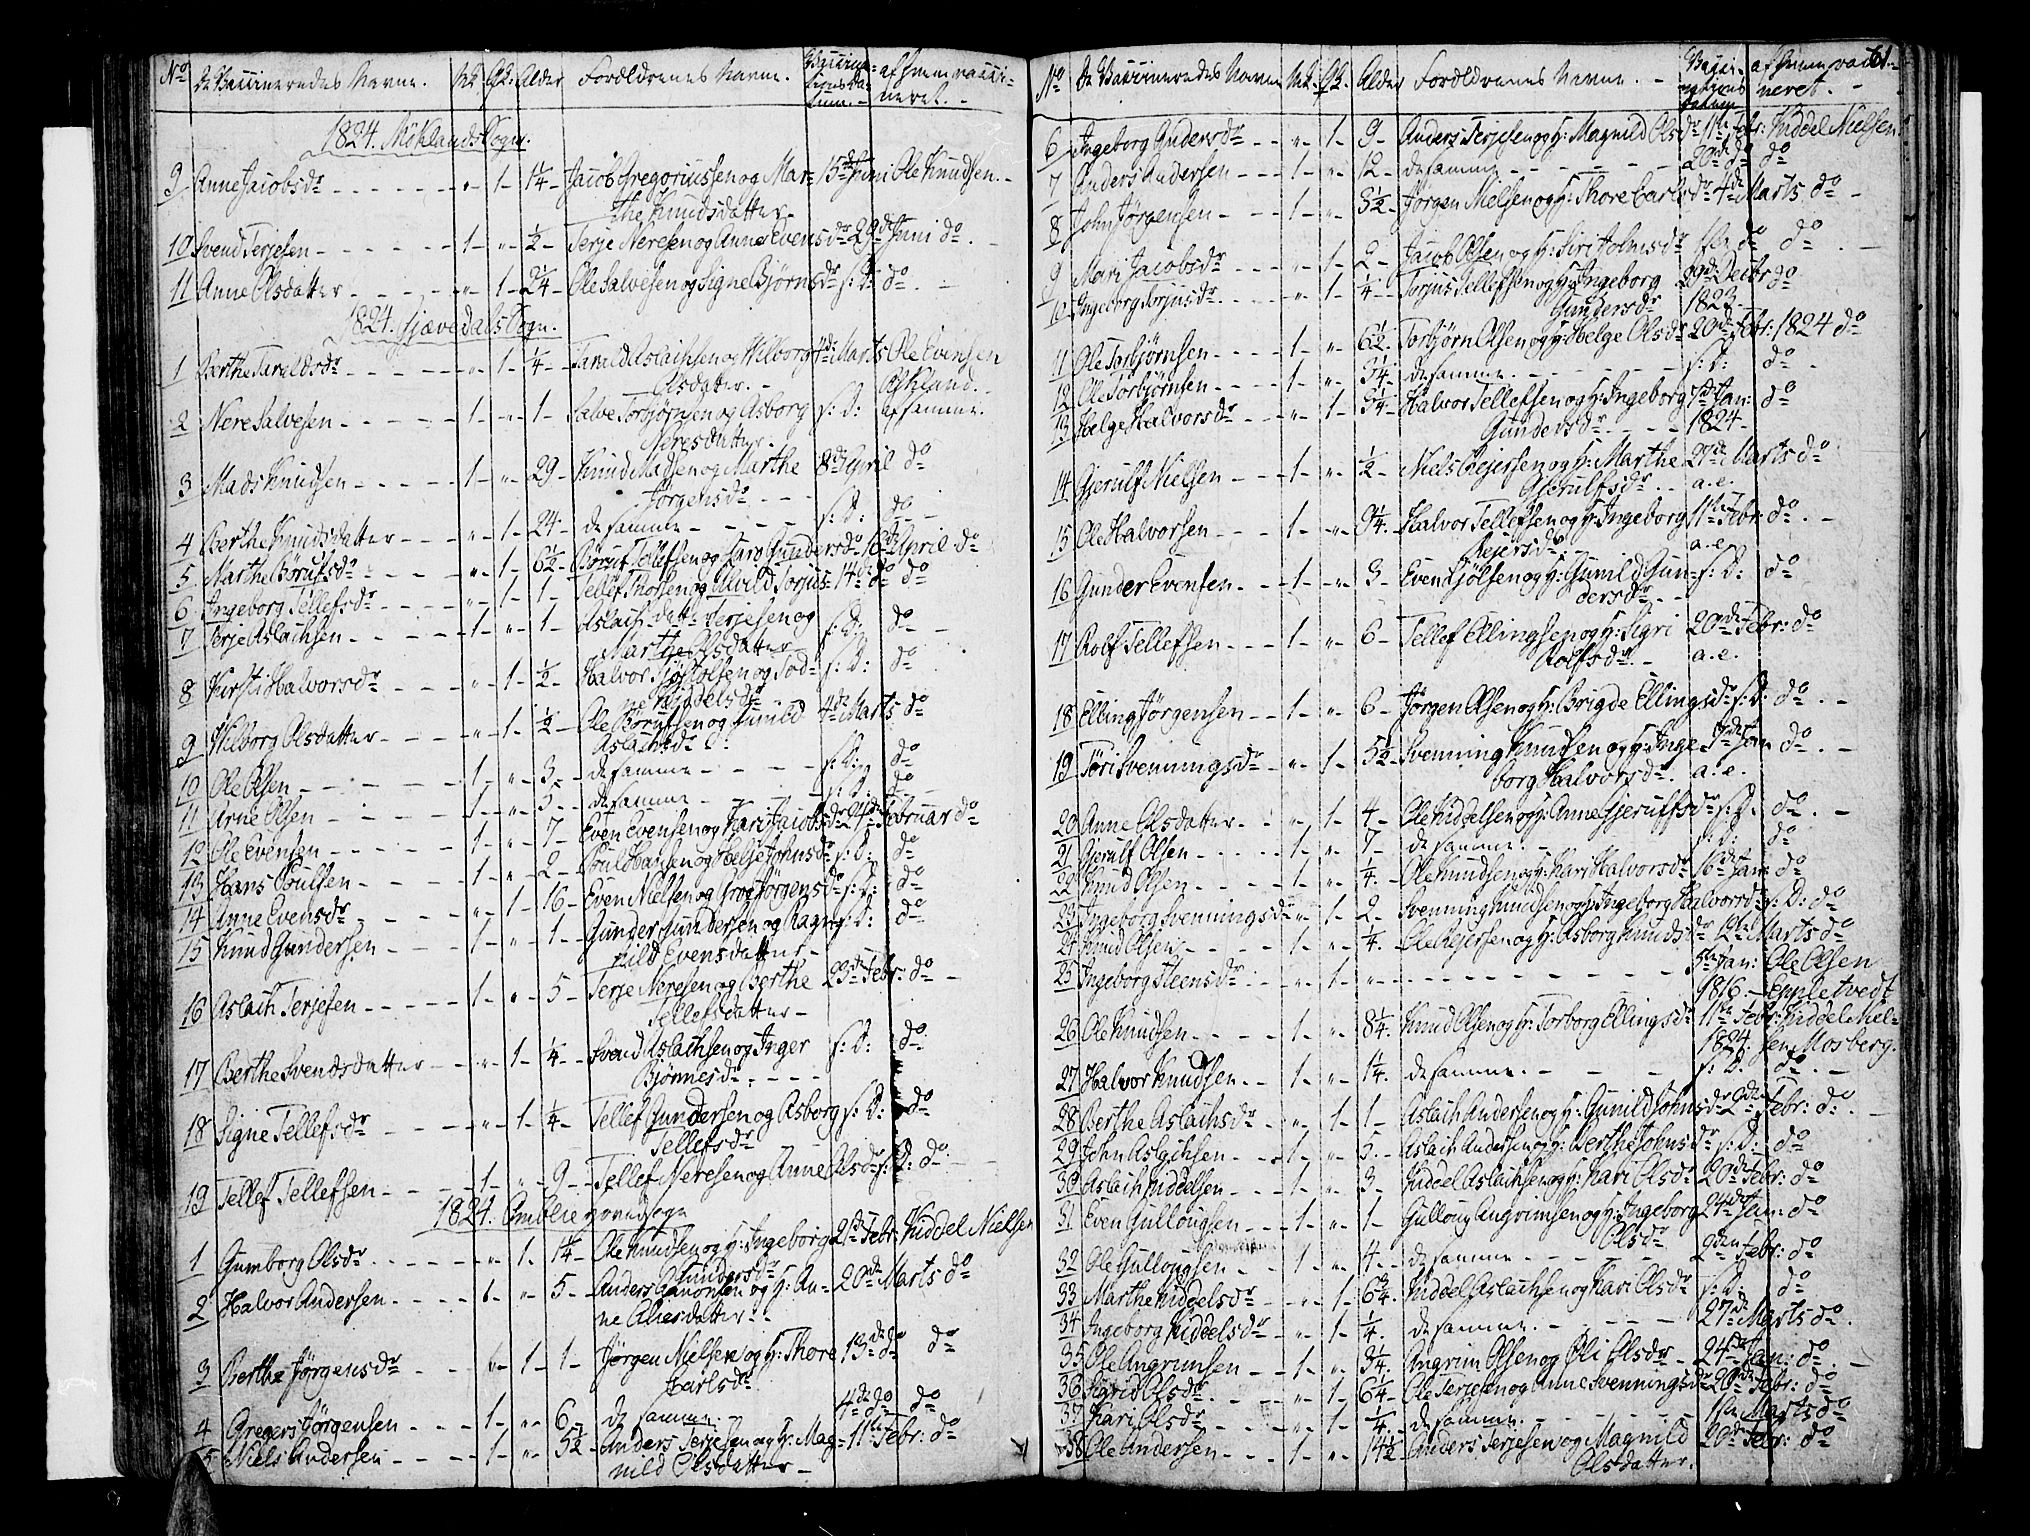 No De Vaccineredes Navne. Mk. Qk. Alder Forældrenes Navne. Vaccinationsdatum. af hvem vaccineret.
1824. Möklands Sogn.
9 Anne Jacobsdr - " - 1 - 1¼ - Jacob Gregoriussen og Mar- 15de Juni Ole Knudsen.
the Knudsdatter.
10 Svend Terjesen - 1 - " - ½ - Terje Neresen og Anne Evensdr 29de Juni do.
11 Anne Olsdatter - " - 1 - 2¼ - Ole Salvesen og Signe Björnsdr s: D: do.
1824. Gjævedals Sogn.
1 Berthe Taraldsdr - " - 1 - ¼ - Tarald Aslachsen og Wilborg 4de Marts Ole Evensen
Olsdatter. - Askland.
2 Nere Salvesen - 1 - " - 1 - Salve Torbjörnsen og Asborg s: D: af samme.
Neresdatter.
3 Mads Knudsen - 1 - " - 29 - Knud Madsen og Marthe 8de April do
Jörgensdr
4 Berthe Knudsdatter - " - 1 - 24 - de samme - s: D: do
5 Marthe Borufsdr - " - 1 - 6½ - Böruf Tellefsen og Taro Gundersdr 16de April do
6 Ingeborg Tellefsdr - " - 1 - 1 - Tellef Tholsen og Alvild Torjus- 14de do do
7 Terje Aslachsen - 1 - " - 1 - Aslach Terjesen og s: D: do
datter
Marthe Olsdatter
8 Kirsti Halvorsdr - " - 1 - ½ - Halvor Sjöstolsen og Tod- s: D: do
ne Kiddelsdr
9 Wilborg Olsdatter - " - 1 - ½ - Ole Börufsen og Gunild 4de Marts do
Aslachsdr
10 Ole Olsen - 1 - " - 3 - de samme - s: D: do
11 Arne Olsen - 1 - " - 5 - de samme - s: D: do
12 Ole Evensen - 1 - " - 7 - Even Evensen og Kari Jacobsdr 24de Februar do
13 Hans Poulsen - 1 - " - 2 - Poul Hansen og Helje Johnsdr s: D: do
14 Anne Evensdr - " - 1 - 16 - Even Nielsen og Gro Jörgensdr s: D: do
15 Knud Gundersen - 1 - " - 1 - Gunder Gundersen og Ragn- s: D: do
hild Evensdatter
16 Aslach Terjesen - 1 - " - 5 - Terje Neresen og Berthe 23de Febr: do
Tellefsdatter
17 Berthe Svendsdatter - " - 1 - ¼ - Svend Aslachsen og Inger s: D: do
Björnesdr
18 Signe Tellefsdr - " - 1 - ¼ - Tellef Gundersen og Asborg s: D: do
Tellefsdr
19 Tellef Tellefsen - 1 - " - 9 - Tellef Neresen og Anne Olsdr s: D: do
1824. Omblie Hovedsogn
1 Gumborg Olsdr - " - 1 - 1¼ - Ole Knudsen og H: Ingeborg 21de Febr: Kiddel Nielsen
Gundersdr
2 Halvor Andersen - 1 - " - 5 - Anders Aanonsen og H: An- 20de Marts do
ne Aliesdatter
3 Berthe Jörgensdr - " - 1 - 1 - Jörgen Nielsen og H: Thore 13de do do
Carlsdr
4 Gregers Jörgensen - 1 - " - 6 - de samme. 4de do do
5 Niels Andersen - 1 - " - 5½ - Anders Terjesen og H: Mag- 11te Febr: do
nild Olsdatter
61
No De Vaccineredes Navne Mk. Qk. Alder Forældrenes Navne. Vaccinations Datum af hvem vaccineret.
6 Ingeborg Andersdr - " - 1 - 9 - Anders Terjesen og H: Magnild Olsdr 11te Febr: Kiddel Nielsen
7 Anders Andersen - 1 - " - 12 - de samme. 20de do do
8 John Jörgensen - 1 - " - 3½ - Jörgen Nielsen og H: Thore Carlsdr 4de Marts do
9 Mari Jacobsdr - " - 1 - 2 - Jacob Olsen og H: Siri Johnsdr 1ste do do
10 Ingeborg Torjusdr - " - 1 - ¼ - Torjus Tellefsen og H: Ingeborg 29de Decbr do
Gundersdr 1823.
11 Ole Torbjörnsen - 1 - " - 6½ - Torbjörn Olsen og H: Helge Olsdr 20de Febr: 1824 do
12 Ole Torbjörnsen - 1 - " - 3¼ - de samme. s: D: do
13 Helge Halvorsdr - " - 1 - 5¼ - Halvor Tellefsen og H: Ingeborg 5te Jan: do
Gundersdr 1824
14 Gjerulf Nielsen - 1 - " - ½ - Niels Reiersen og H: Marthe 27de Marts do
Gjerulfsdr a. e.
15 Ole Halvorsen - 1 - " - 9¼ - Halvor Tellefsen og H: Ingeborg 11te Febr: do
Rejersdr a. e.
16 Gunder Evensen - 1 - " - 3 - Even Kjölsen og H: Gunild Gun- s: D: do
dersdr
17 Rolf Tellefsen - 1 - " - 6 - Tellef Ellingsen og H: Sigri 20de Febr: do
Rolfsdr a. e.
18 Elling Jörgensen - 1 - " - 6 - Jörgen Olsen og H: Brigde Ellingsdr s: D: do
19 Töri Svenningsdr - " - 1 - 5½ - Svenning Knudsen og H: Inge- Jan: do
borg Halvorsdr a. e.
20 Anne Olsdatter - " - 1 - 4 - Ole Kiddelsen og H: Anne Gjerulfsdr s: D: do
21 Gjerulf Olsen - 1 - " - 7 - de samme. s: D: do
22 Knud Olsen - 1 - " - ¼ - Ole Knudsen og H: Kari Halvorsdr 16de Jan: do
23 Ingeborg Svenningsdr - " - 1 - 2 - Svenning Knudsen og H: Ingeborg Halvorsdr s: D: do
24 Knud Olsen - 1 - " - ¼ - Ole Rejersen og H: Asborg Knudsdr 12te Marts do
25 Ingeborg Steensdr - " - 1 - " - - - - - 5te Jan: Ole Olsen
1816. Eppletvedt
26 Ole Knudsen - 1 - " - 8¼ - Knud Olsen og H: Torborg Ellingsdr 11te Febr: Kiddel Niel-
1824. sen Mosberg.
27 Halvor Knudsen - 1 - " - 1¼ - de samme. s: D. do
28 Berthe Aslachsdr - " - 1 - 1 - Aslach Andersen og H: Gunild Johnsdr 2den Febr: do
29 John Aslachsen - 1 - " - 5 - Aslach Andersen og H: Berthe Johnsdr s: D: do
30 Aslach Kiddelsen - 1 - " - 3 - Kiddel Aslachsen og H: Kari Olsdr 20de Febr: do
31 Even Gullougsen - 1 - " - 1 - Gulloug Angrimsen og H: Ingeborg 24de Jan: do
Olsdr
32 Ole Gullougsen - 1 - " - 4 - de samme 2den Febr: do
33 Marthe Kiddelsdr - " - 1 - 6¾ - Kiddel Aslachsen og Kari Olsdr s: D: do
34 Ingeborg Kiddelsdr - " - 1 - ¼ - de samme. 27de Marts do
35 Ole Angrimsen - 1 - " - 3¼ - Angrim Olsen og Oli Olsdr 24de Jan: do
36 Sigrid Olsdr - " - 1 - 6¼ - Ole Terjesen og Anne Svenningsdr 20de Febr: do
37 Kari Olsdr - " - 1 - ¼ - de samme. 11te Marts do
38 Ole Andersen - 1 - " - 14½ - Anders Terjesen og Magnild 20de Febr: do
Olsdatter.